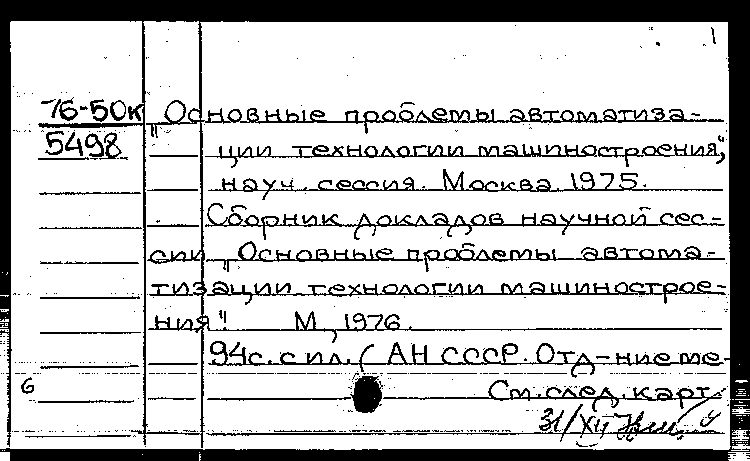 1
76-50к „Основные проблемы автоматиза-
5498 ции технологии машиностроения",
науч. сессия. Москва. 1975.
Сборник докладов научной сес-
сии „Основные проблемы автома-
тизации технологии машинострое-
ния". М., 1976.
94с. с ил. (АН СССР. Отд-ние ме-
6 См. след. карт.
31/XII